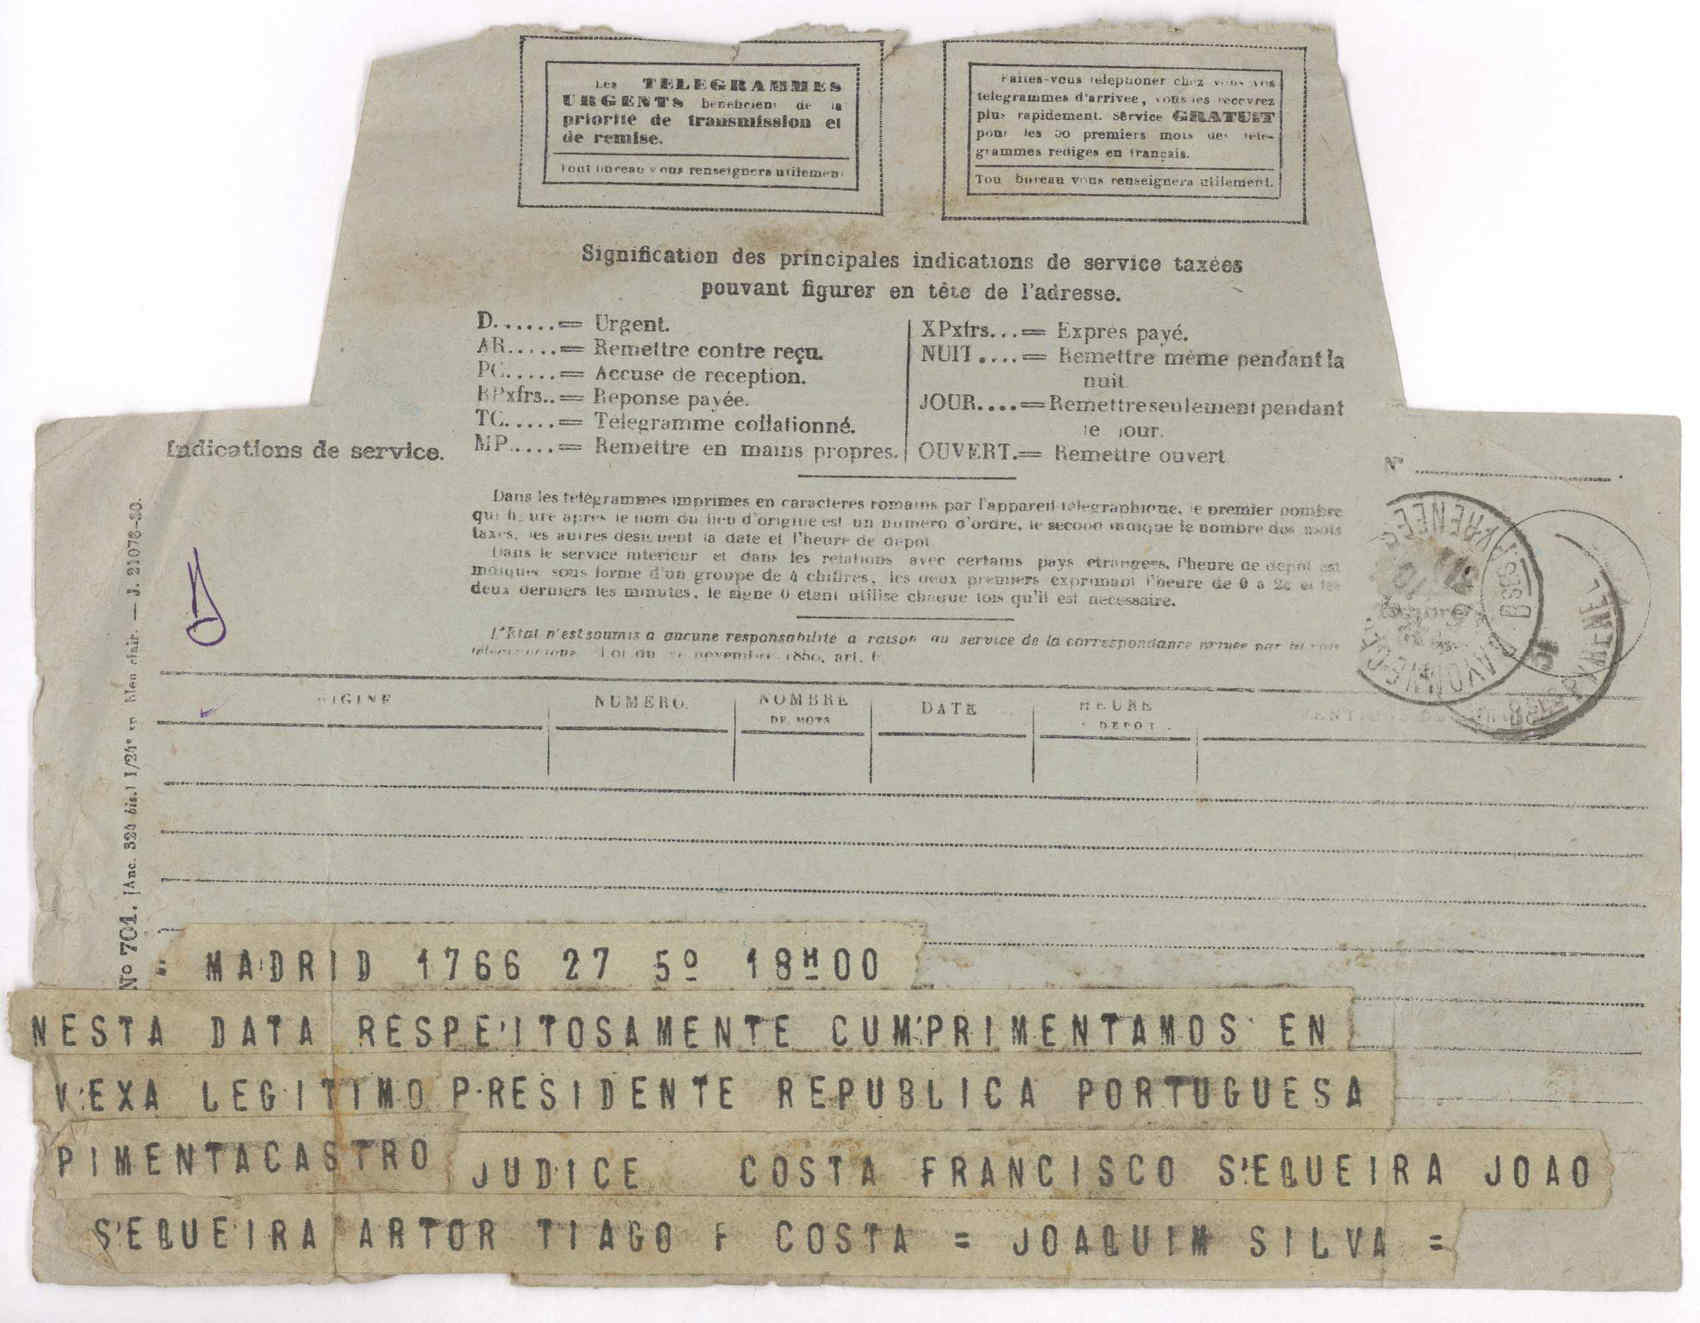 Les TELEGRAMMES
URGENTS beneficient de la
priorité de transmission et
de remise.
Tout bureau vous renseignera utilement
Faites-vous telephoner chez vous vos
telegrammes d'arrivee, vous les recevrez
plus rapidement. Service GRATUIT
pour les 50 premiers mots des tele-
grammes rediges en français.
Tout bureau vous renseignera utilement.
Signification des principales indications de service taxées
pouvant figurer en tête de l'adresse.
D......= Urgent.
AR.....= Remettre contre reçu.
PC.....= Accuse de reception.
RPxfrs..= Reponse payée.
TC.....= Telegramme collationné.
MP.....= Remettre en mains propres.
XPxfrs...= Expres payé.
NUIT....= Remettre même pendant la
nuit.
JOUR....= Remettre seulement pendant
le jour.
OUVERT.= Remettre ouvert
Indications de service.
N°
Dans les telégrammes imprimes en caracteres romains par l'appareil telegraphique, le premier nombre
qui figure après le nom du lieu d'origine est un numero d'ordre, le second indique le nombre des mots
taxes, les autres designent la date et l'heure de depot.
Dans le service interieur et dans les relations avec certains pays etrangers, l'heure de depot est
indiquee sous forme d'un groupe de 4 chiffres, les deux premiers exprimant l'heure de 0 a 24 et les
deux derniers les minutes, le signe 0 etant utilise chaque fois qu'il est necessaire.
L'Etat n'est soumis a aucune responsabilité a raison du service de la correspondance privee par la voie
telegraphique. Loi du 29 novembre 1850, art. 6
ORIGINE
NUMERO.
NOMBRE
DE MOTS
DATE
HEURE
DEPOT.
No 701. (Anc. 324 bis.) 1/24e en bleu clair. — J. 21076-30.
= MADRID 1766 27 5º 18H00
NESTA DATA RESPEITOSAMENTE CUMPRIMENTAMOS EN
VEXA LEGITIMO PRESIDENTE REPUBLICA PORTUGUESA
PIMENTACASTRO JUDICE COSTA FRANCISCO SEQUEIRA JOAO
SEQUEIRA ARTOR TIAGO F COSTA = JOAQUIM SILVA =